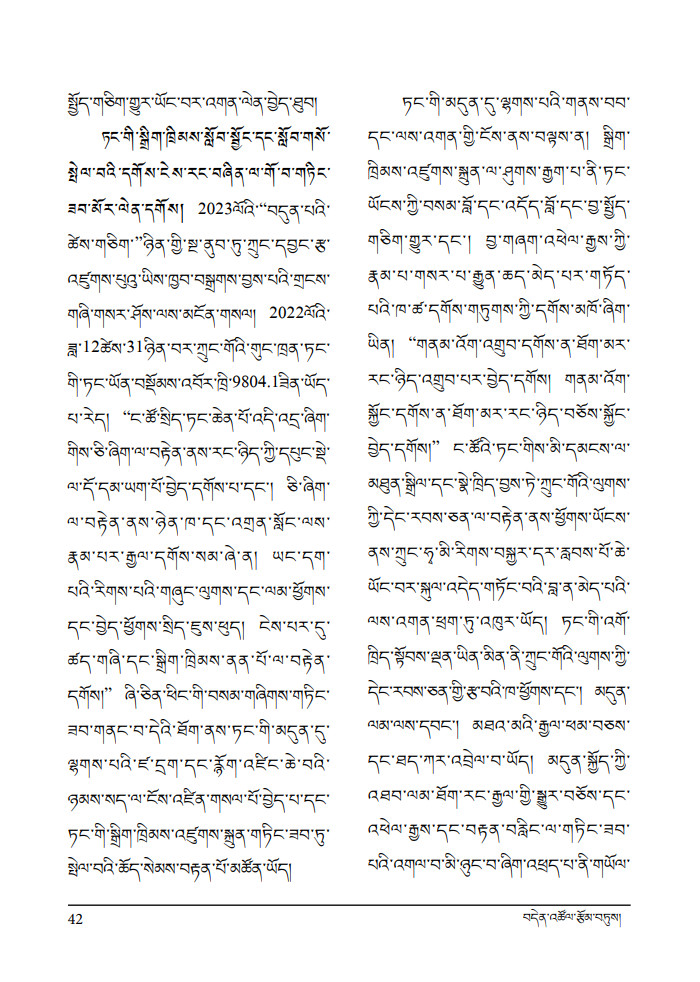 སྤྱོད་གཅིག་གྱུར་ཡོང་བར་འགན་ལེན་བྱེད་ཐུབ།
ཏང་གི་སྒྲིག་ཁྲིམས་སློབ་སྦྱོང་དང་སློབ་གསོ་
སྤེལ་བའི་དགོས་ངེས་རང་བཞིན་ལ་གོ་བ་གཏིང་
ཟབ་མོར་ལེན་དགོས། 2023ལོའི་“བདུན་པའི་
ཚེས་གཅིག་”ཉིན་གྱི་སྔ་ནུབ་ཏུ་ཀྲུང་དབྱང་རྩ་
འཛུགས་པུའུ་ཡིས་ཁྱབ་བསྒྲགས་བྱས་པའི་གྲངས་
གཞི་གསར་ཤོས་ལས་མངོན་གསལ། 2022ལོའི་
ཟླ་12ཚེས་31ཉིན་བར་ཀྲུང་གོའི་གུང་ཁྲན་ཏང་
གི་ཏང་ཡོན་བསྡོམས་འབོར་ཁྲི་9804.1ཟིན་ཡོད་
པ་རེད། “ང་ཚོ་སྲིད་ཏང་ཆེན་པོ་འདི་འདྲ་ཞིག་
གིས་ཅི་ཞིག་ལ་བརྟེན་ནས་རང་ཉིད་ཀྱི་དཔུང་སྡེ་
ལ་དོ་དམ་ཡག་པོ་བྱེད་དགོས་པ་དང་། ཅི་ཞིག་
ལ་བརྟེན་ནས་ཉེན་ཁ་དང་འགྲན་སློང་ལས་
རྣམ་པར་རྒྱལ་དགོས་སམ་ཞེ་ན། ཡང་དག་
པའི་རིགས་པའི་གཞུང་ལུགས་དང་ལམ་ཕྱོགས་
དང་བྱེད་ཕྱོགས་སྲིད་ཇུས་ཕུད། ངེས་པར་དུ་
ཚད་གཞི་དང་སྒྲིག་ཁྲིམས་ནན་པོ་ལ་བརྟེན་
དགོས།” ཞི་ཅིན་ཕིང་གི་བསམ་གཞིགས་གཏིང་
ཟབ་གནང་བ་དེའི་ཐོག་ནས་ཏང་གི་མདུན་དུ་
ལྷགས་པའི་ཛ་དྲག་དང་རྙོག་འཛིང་ཆེ་བའི་
ཉམས་སད་ལ་ངོས་འཛིན་གསལ་པོ་བྱེད་པ་དང་
ཏང་གི་སྒྲིག་ཁྲིམས་འཛུགས་སྐྲུན་གཏིང་ཟབ་ཏུ་
སྤེལ་བའི་ཆོད་སེམས་བརྟན་པོ་མཚོན་ཡོད།
ཏང་གི་མདུན་དུ་ལྷགས་པའི་གནས་བབ་
དང་ལས་འགན་གྱི་ངོས་ནས་བལྟས་ན། སྒྲིག་
ཁྲིམས་འཛུགས་སྐྲུན་ལ་ཤུགས་རྒྱག་པ་ནི་ཏང་
ཡོངས་ཀྱི་བསམ་བློ་དང་འདོད་བློ་དང་བྱ་སྤྱོད་
གཅིག་གྱུར་དང་། བྱ་གཞག་འཕེལ་རྒྱས་ཀྱི་
རྣམ་པ་གསར་པ་རྒྱུན་ཆད་མེད་པར་གཏོད་
པའི་ཁ་ཚ་དགོས་གཏུགས་ཀྱི་དགོས་མཁོ་ཞིག་
ཡིན། “གནམ་འོག་འགྲུབ་དགོས་ན་ཐོག་མར་
རང་ཉིད་འགྲུབ་པར་བྱེད་དགོས། གནམ་འོག་
སྐྱོང་དགོས་ན་ཐོག་མར་རང་ཉིད་བཅོས་སྐྱོང་
བྱེད་དགོས།” ང་ཚོའི་ཏང་གིས་མི་དམངས་ལ་
མཐུན་སྒྲིལ་དང་སྣེ་ཁྲིད་བྱས་ཏེ་ཀྲུང་གོའི་ལུགས་
ཀྱི་དེང་རབས་ཅན་ལ་བརྟེན་ནས་ཕྱོགས་ཡོངས་
ནས་ཀྲུང་ཧྭ་མི་རིགས་བསྐྱར་དར་རླབས་པོ་ཆེ་
ཡོང་བར་སྐུལ་འདེད་གཏོང་བའི་བླ་ན་མེད་པའི་
ལས་འགན་ཕྲག་ཏུ་འཁུར་ཡོད། ཏང་གི་འགོ་
ཁྲིད་སྟོབས་ལྡན་ཡིན་མིན་ནི་ཀྲུང་གོའི་ལུགས་ཀྱི་
དེང་རབས་ཅན་གྱི་རྩ་བའི་ཁ་ཕྱོགས་དང་། མདུན་
ལམ་ལས་དབང་། མཐའ་མའི་རྒྱལ་ཕམ་བཅས་
དང་ཐད་ཀར་འབྲེལ་བ་ཡོད། མདུན་སྐྱོད་ཀྱི་
འཐབ་ལམ་ཐོག་རང་རྒྱལ་གྱི་སྒྱུར་བཅོས་དང་
འཕེལ་རྒྱས་དང་བརྟན་བརླིང་ལ་གཏིང་ཟབ་
པའི་འགལ་བ་མི་ཉུང་བ་ཞིག་འཕྲད་པ་ནི་གཡོལ་
42
བདེན་འཚོལ་རྩོམ་བཏུས།